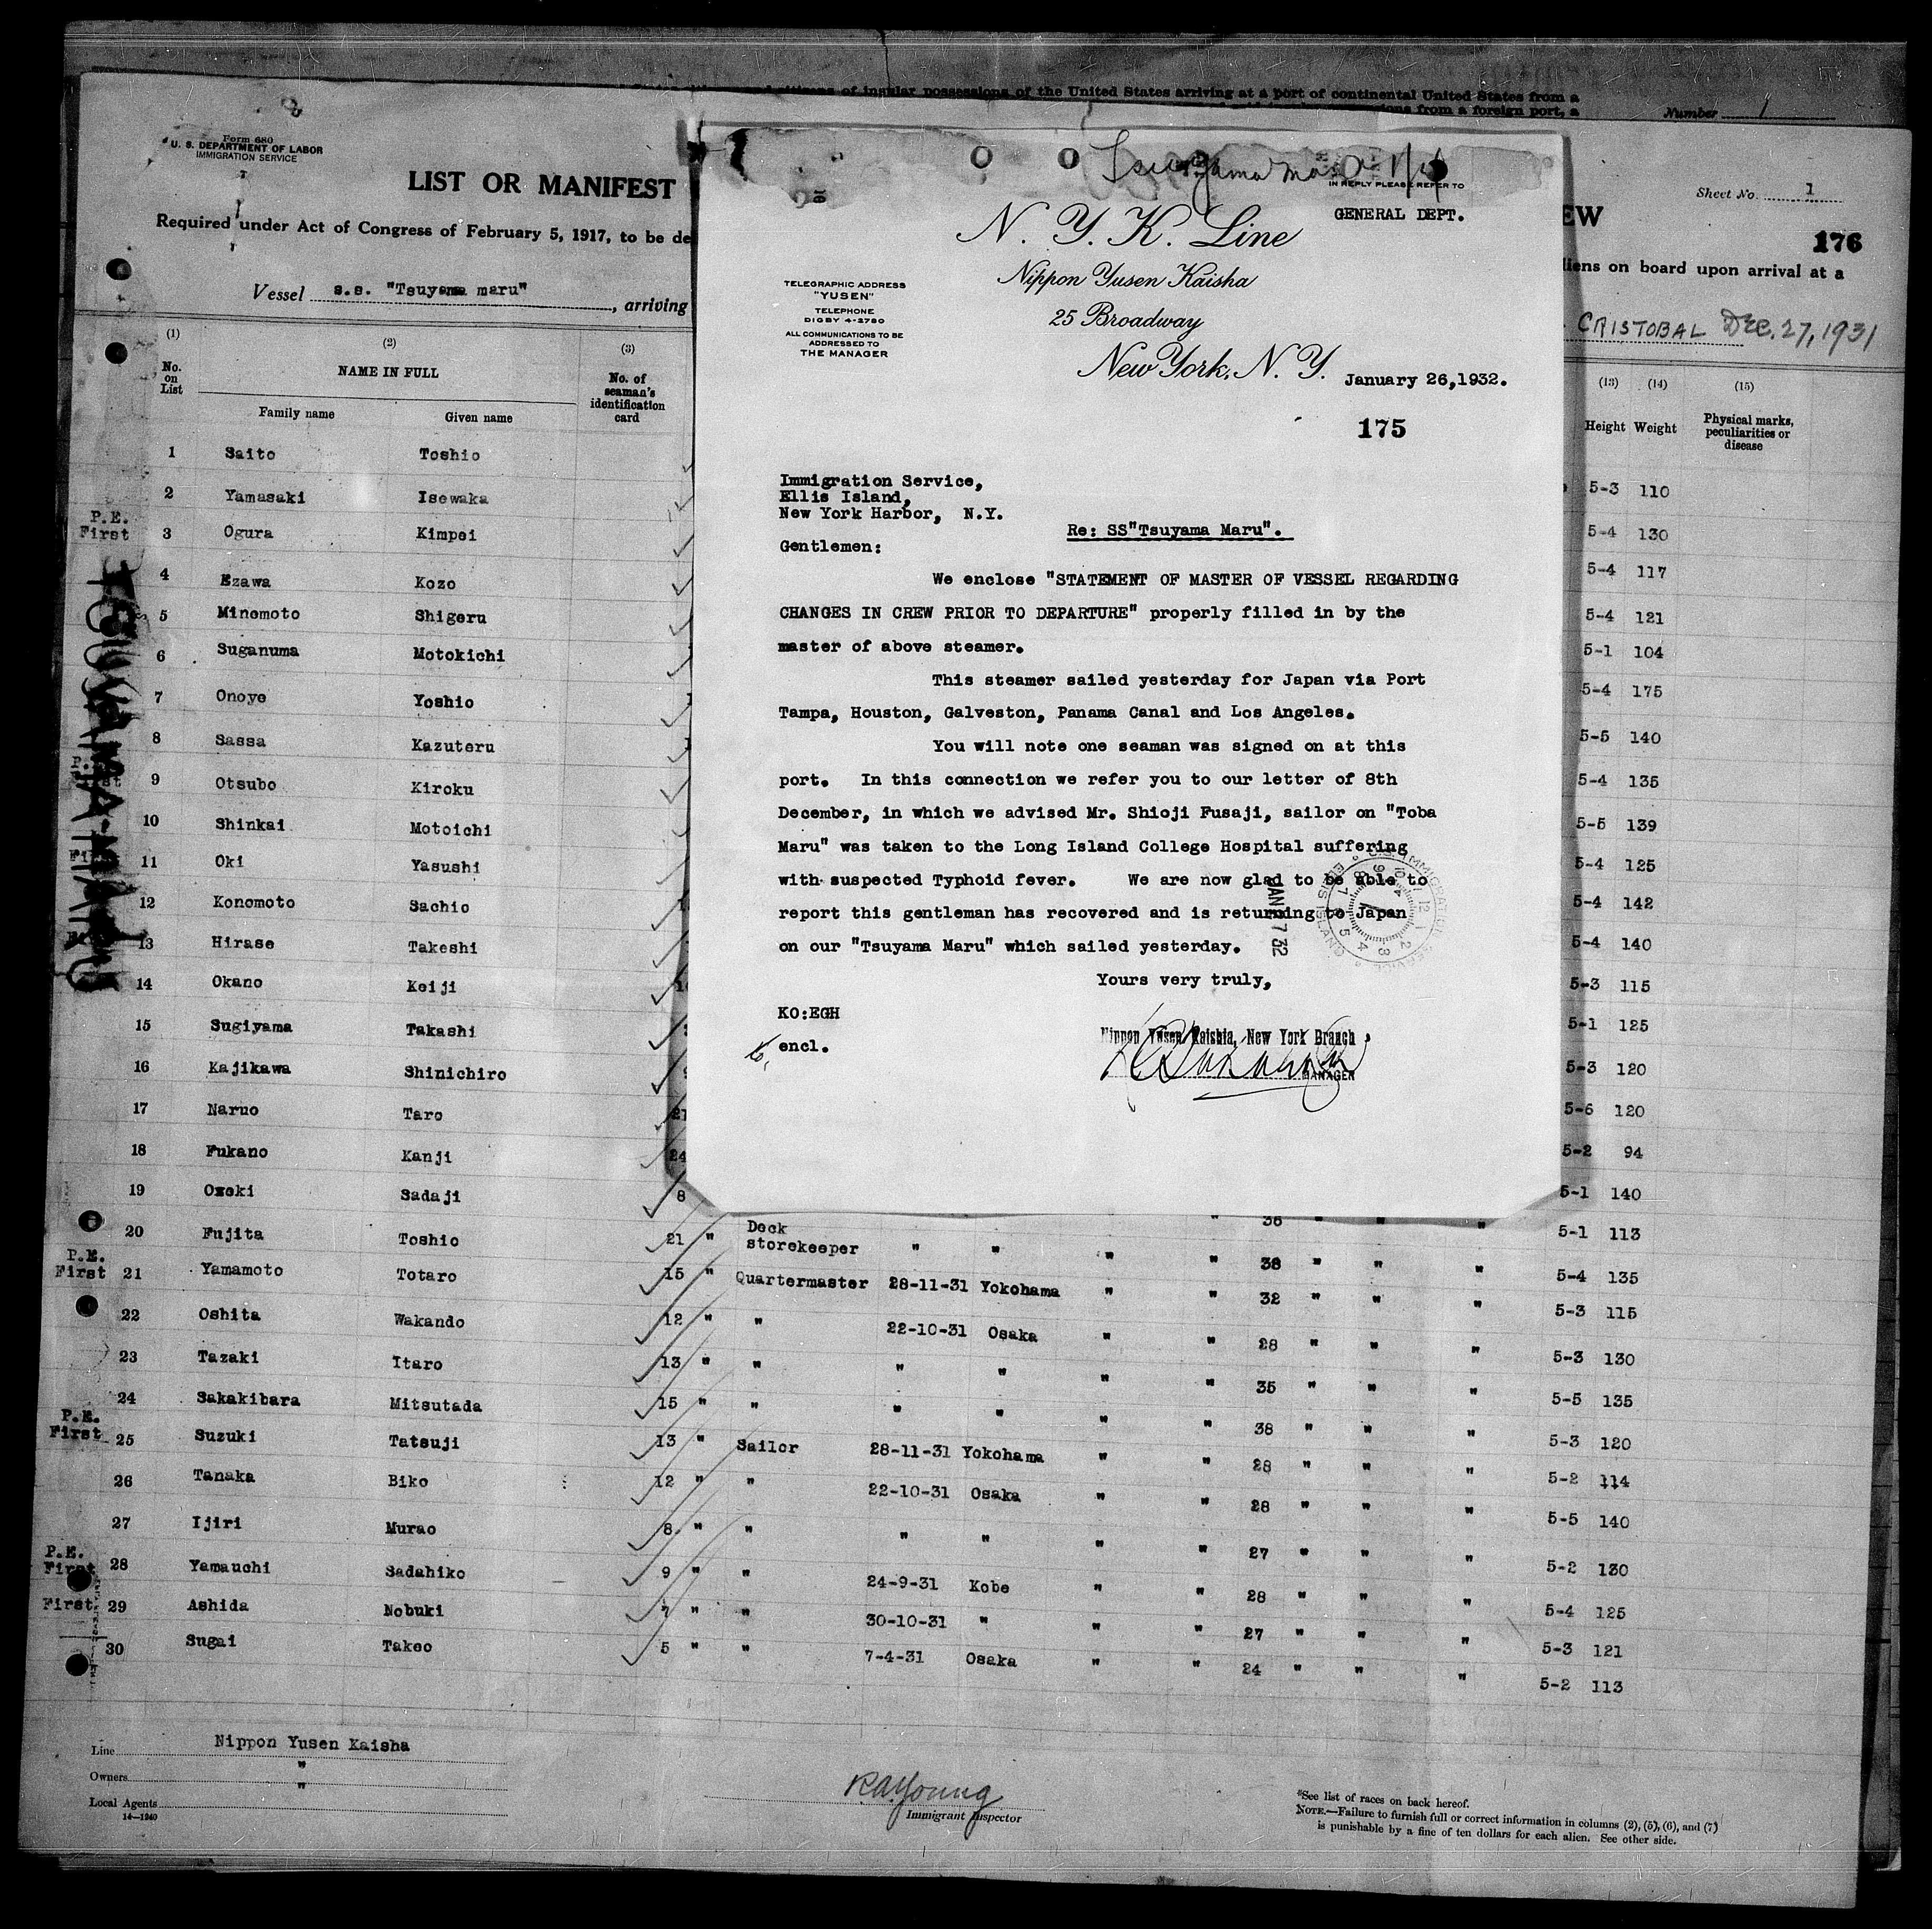 of insular possessions of the United States arriving at a port of continental United States from a
from a foreign port, a
Number 1
Form 680
U. S. DEPARTMENT OF LABOR
IMMIGRATION SERVICE
LIST OR MANIFEST
EW
Sheet No. 1
176
Required under Act of Congress of February 5, 1917, to be de
liens on board upon arrival at a
Vessel s.s. "Tsuyama maru", arriving
CRISTOBAL DEC. 27, 1931
(1) (2) (3) (13) (14) (15)
No. on List
NAME IN FULL
Family name Given name
No. of seaman's identification card
Height Weight
Physical marks, peculiarities or disease
Tsuyama Maru
IN REPLY PLEASE REFER TO
GENERAL DEPT.
N. Y. K. Line
Nippon Yusen Kaisha
25 Broadway
New York, N. Y. January 26,1932.
TELEGRAPHIC ADDRESS
"YUSEN"
TELEPHONE
DIGBY 4-2780
ALL COMMUNICATIONS TO BE
ADDRESSED TO
THE MANAGER
175
Immigration Service,
Ellis Island,
New York Harbor, N.Y.
Re: SS"Tsuyama Maru".
Gentlemen:
We enclose "STATEMENT OF MASTER OF VESSEL REGARDING
CHANGES IN CREW PRIOR TO DEPARTURE" properly filled in by the
master of above steamer.
This steamer sailed yesterday for Japan via Port
Tampa, Houston, Galveston, Panama Canal and Los Angeles.
You will note one seaman was signed on at this
port. In this connection we refer you to our letter of 8th
December, in which we advised Mr. Shioji Fusaji, sailor on "Toba
Maru" was taken to the Long Island College Hospital suffering
with suspected Typhoid fever. We are now glad to be able to
report this gentleman has recovered and is returning to Japan
on our "Tsuyama Maru" which sailed yesterday.
Yours very truly,
KO:EGH
encl.
Nippon Yusen Kaisha, New York Branch,
MANAGER
U.S. IMMIGRATION SERVICE ELLIS ISLAND
JAN 27 32
TSUYAMA-MARU
1 Saito Toshio
2 Yamasaki Isewaka 5-3 110
P.E. First 3 Ogura Kimpei 5-4 130
4 Ezawa Kozo 5-4 117
5 Minomoto Shigeru 5-4 121
6 Suganuma Motokichi 5-1 104
7 Onoye Yoshio 5-4 175
8 Sassa Kazuteru 5-5 140
9 Otsubo Kiroku 5-4 135
10 Shinkai Motoichi 5-5 139
11 Oki Yasushi 5-4 125
12 Konomoto Sachio 5-4 142
13 Hirase Takeshi 5-4 140
14 Okano Keiji 5-3 115
15 Sugiyama Takashi 5-1 125
16 Kajikawa Shinichiro 5-3 120
17 Naruo Taro 21 5-6 120
18 Fukano Kanji 24 5-2 94
19 Ozeki Sadaji 8 36 " " " 5-1 140
20 Fujita Toshio 21 " Deck storekeeper " " " " 38 " " " 5-1 113
P.E. First 21 Yamamoto Totaro 15 " Quartermaster 28-11-31 Yokohama " " 32 " " " 5-4 135
22 Oshita Wakando 12 " " 22-10-31 Osaka " " 28 " " " 5-3 115
23 Tazaki Itaro 13 " " " " " " 35 " " " 5-3 130
24 Sakakibara Mitsutada 15 " " " " " " 38 " " " 5-5 135
P.E. First 25 Suzuki Tatsuji 13 " Sailor 28-11-31 Yokohama " " 28 " " " 5-3 120
26 Tanaka Biko 12 " " 22-10-31 Osaka " " 28 " " " 5-2 114
27 Ijiri Murao 8 " " " " " " 27 " " " 5-5 140
P.E. First 28 Yamauchi Sadahiko 9 " " 24-9-31 Kobe " " 28 " " " 5-2 130
First 29 Ashida Nobuki 7 " " 30-10-31 " " " 27 " " " 5-4 125
30 Sugai Takeo 5 " " 7-4-31 Osaka " " 24 " " " 5-3 121
5-2 113
Line Nippon Yusen Kaisha
Owners "
Local Agents "
14—1240
R.A. Young
Immigrant Inspector
*See list of races on back hereof.
NOTE.—Failure to furnish full or correct information in columns (2), (5), (6), and (7)
is punishable by a fine of ten dollars for each alien. See other side.